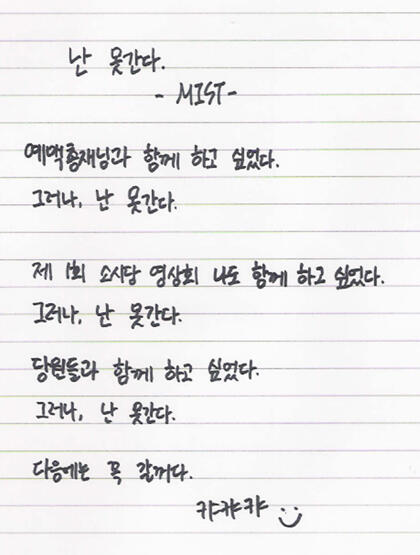 난 못간다.
- MIST -
예맥총재님과 함께 하고 싶었다.
그러나, 난 못간다.
제 1회 소시당 영상회 나도 함께 하고 싶었다.
그러나, 난 못간다.
당원들과 함께 하고 싶었다.
그러나, 난 못간다.
다음에는 꼭 갈꺼다.
캬캬캬